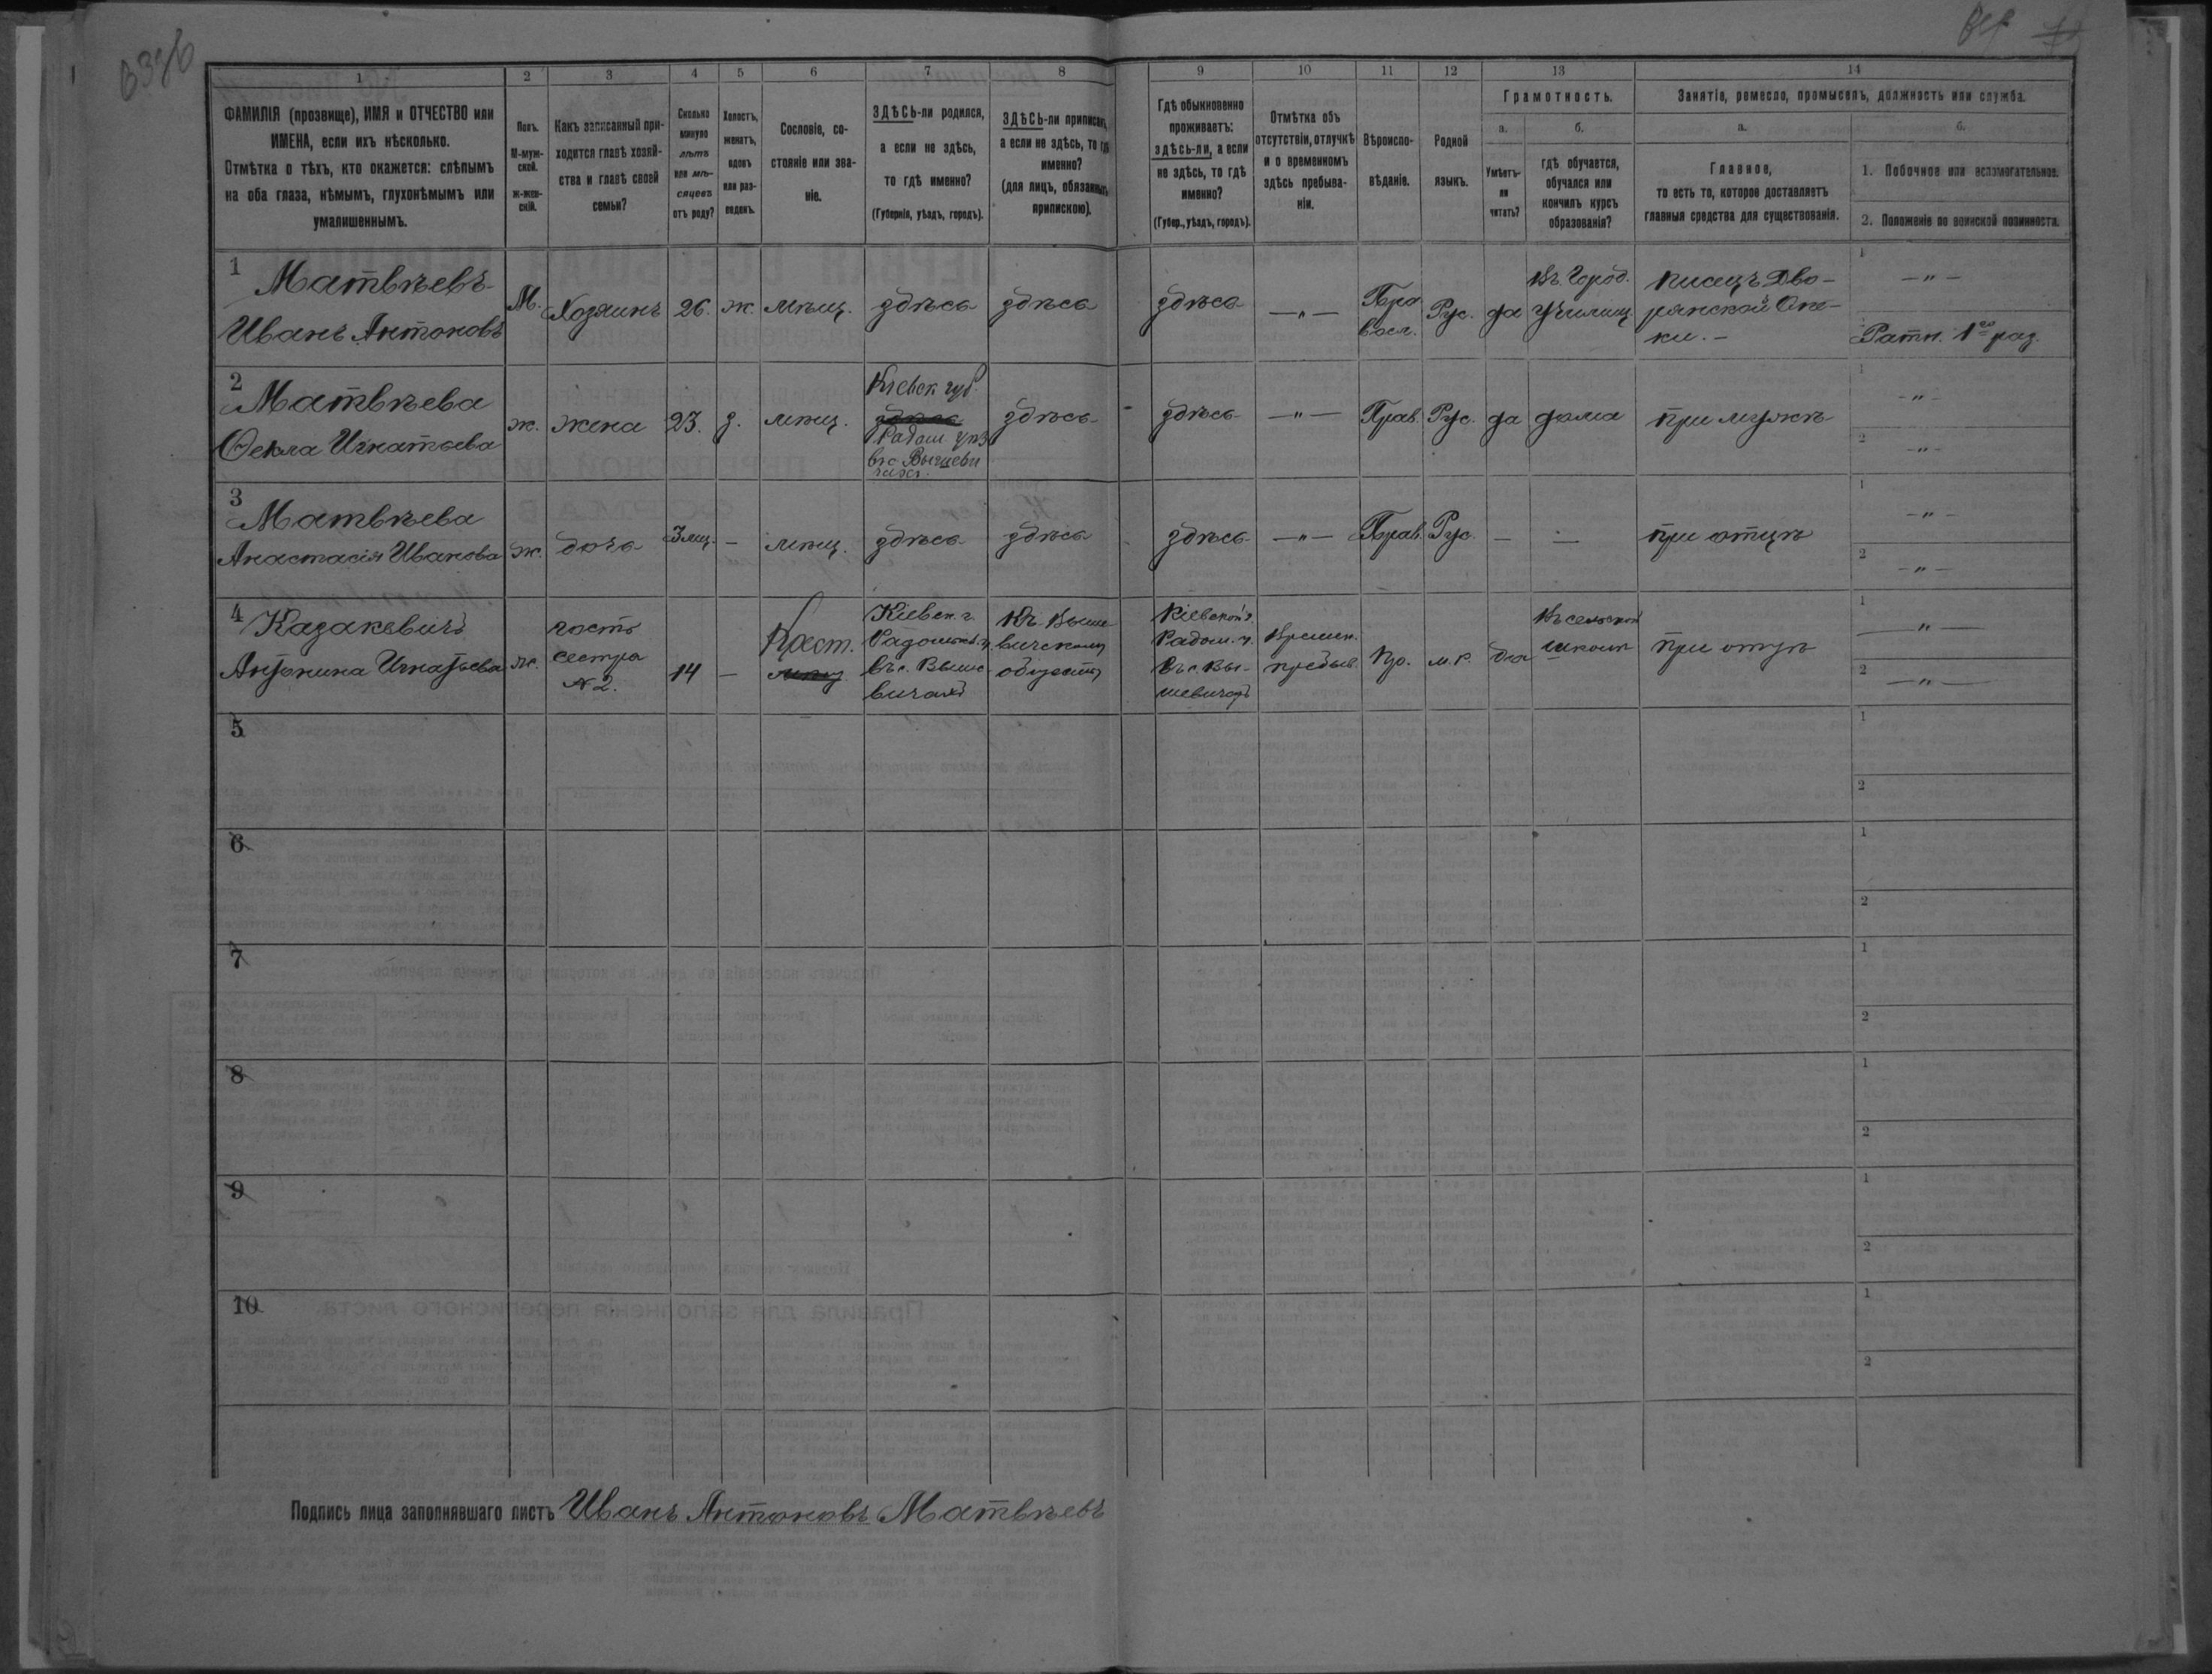 1 2 3 4 5 6 7 8 9 10 11 12 13 14
ФАМИЛІЯ (прозвище), ИМЯ и ОТЧЕСТВО или
ИМЕНА, если ихъ нѣсколько.
Отмѣтка о тѣхъ, кто окажется: слѣпымъ
на оба глаза, нѣмымъ, глухонѣмымъ или
умалишеннымъ.
Полъ.
М-муж-
ской.
ж-жен-
скій.
Какъ записанный при-
ходится главѣ хозяй-
ства и главѣ своей
семьи?
Сколько
минуло
лѣтъ
или мѣ-
сяцевъ
отъ роду?
Холостъ,
женатъ,
вдовъ
или раз-
веденъ.
Сословіе, со-
стояніе или зва-
ніе.
ЗДѢСЬ-ли родился,
а если не здѣсь,
то гдѣ именно?
(Губернія, уѣздъ, городъ).
ЗДѢСЬ-ли приписанъ,
а если не здѣсь, то гдѣ
именно?
(для лицъ, обязанныхъ
припискою).
Гдѣ обыкновенно
проживаетъ:
здѣсь-ли, а если
не здѣсь, то гдѣ
именно?
(Губер., уѣздъ, городъ).
Отмѣтка объ
отсутствіи, отлучкѣ
и о временномъ
здѣсь пребыва-
ніи.
Вѣроиспо-
вѣданіе.
Родной
языкъ.
Грамотность.
а.
Умѣетъ-
ли
читать?
б.
гдѣ обучается,
обучался или
кончилъ курсъ
образованія?
Занятіе, ремесло, промыселъ, должность или служба.
а.
Главное,
то есть то, которое доставляетъ
главныя средства для существованія.
б.
1. Побочное или вспомогательное.
2. Положеніе по воинской повинности.
1
Матвѣевъ
Иванъ Антоновъ
М.
Хозяинъ
26.
ж.
мѣщ.
здѣсь
здѣсь
здѣсь
— „ —
Пра
восл.
Рус.
да
Въ Город.
Училищ.
писецъ Дво-
рянской Опе-
ки. —
1
— „ —
Ратн. 1го раз.
2
Матвѣева
Ѳекла Игнатьева
ж.
жена
23.
з.
мѣщ.
Кіевск губ.
здѣсь
Радом уѣз
въ с Вышеви
чахъ.
здѣсь
здѣсь
— „ —
Прав.
Рус.
да
дома
при мужѣ
1
— „ —
2
— „ —
3
Матвѣева
Анастасія Иванова
ж.
дочь
3 мц.
—
мѣщ.
здѣсь
здѣсь
здѣсь
— „ —
Прав.
Рус.
—
—
при отцѣ
1
— „ —
2
— „ —
4
Казакевичъ
Антонина Игнатьева
ж.
гость
сестра
№ 2.
14
—
Крест.
мѣщ.
Кіевск. г.
Радомысл. у.
въ с. Выше-
вичахъ
Къ Выше
вичскому
обществу
Кіевской г.
Радом. у.
въ с. Вы-
шевичахъ
Времен.
пребыв.
Пр.
м. р.
да
Въ сельской
школѣ
при отцѣ
1
— „ —
2
— „ —
5
1
2
6
1
2
7
1
2
8
1
2
9
1
2
10
1
2
Подпись лица заполнявшаго листъ Иванъ Антоновъ Матвѣевъ